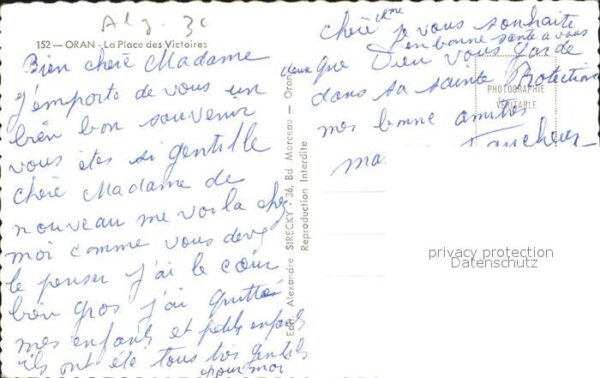 Alg. 30
152 — ORAN - La Place des Victoires
Bien chère Madame
j'emporte de vous un
bien bon souvenir
vous êtes si gentille
chère Madame de
nouveau me voila chez
moi comme vous devez
le penser j'ai le cœur
bien gros j'ai quittée
mes enfants et petits enfants
ils ont été tous très gentils
pour moi
Edit. Alexandre SIRECKY - 36, Bd Marceau — Oran
Reproduction Interdite
chère
je vous souhaite
bonne santé a vous
deux que Dieu vous garde
dans sa sainte Protection
mes bonne amitiés
PHOTOGRAPHIE
VÉRITABLE
privacy protection
Datenschutz